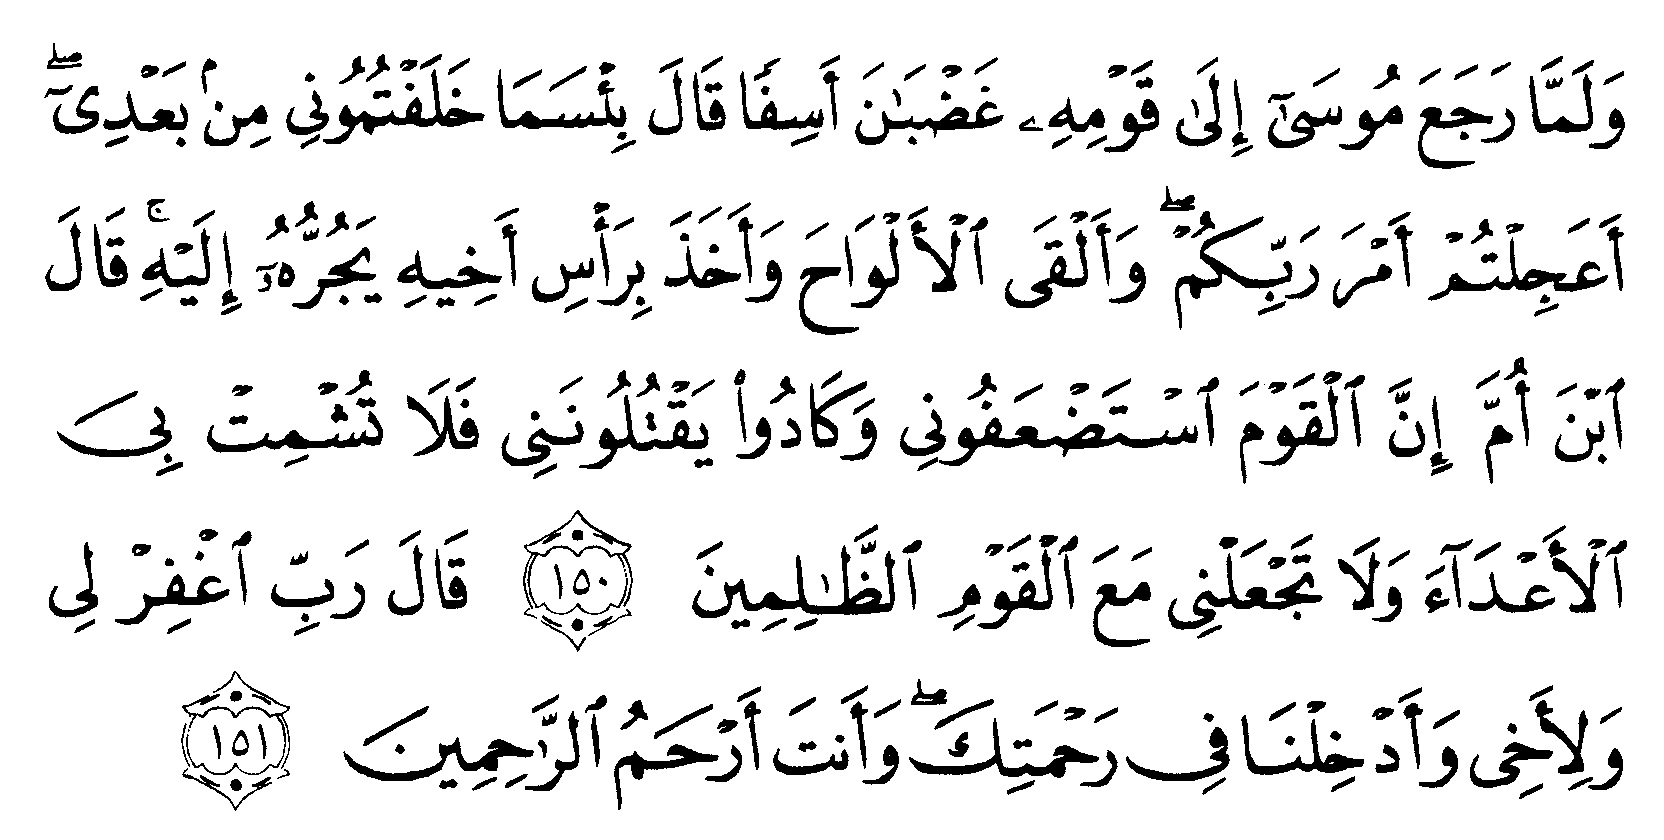 وَلَمَّا رَجَعَ مُوسَىٰٓ إِلَىٰ قَوْمِهِۦ غَضْبَـٰنَ أَسِفًا قَالَ بِئْسَمَا خَلَفْتُمُونِى مِنۢ بَعْدِىٓ ۖ
أَعَجِلْتُمْ أَمْرَ رَبِّكُمْ ۖ وَأَلْقَى ٱلْأَلْوَاحَ وَأَخَذَ بِرَأْسِ أَخِيهِ يَجُرُّهُۥٓ إِلَيْهِ ۚ قَالَ
ٱبْنَ أُمَّ إِنَّ ٱلْقَوْمَ ٱسْتَضْعَفُونِى وَكَادُوا۟ يَقْتُلُونَنِى فَلَا تُشْمِتْ بِىَ
ٱلْأَعْدَآءَ وَلَا تَجْعَلْنِى مَعَ ٱلْقَوْمِ ٱلظَّـٰلِمِينَ ١٥٠ قَالَ رَبِّ ٱغْفِرْ لِى
وَلِأَخِى وَأَدْخِلْنَا فِى رَحْمَتِكَ ۖ وَأَنتَ أَرْحَمُ ٱلرَّٰحِمِينَ ١٥١